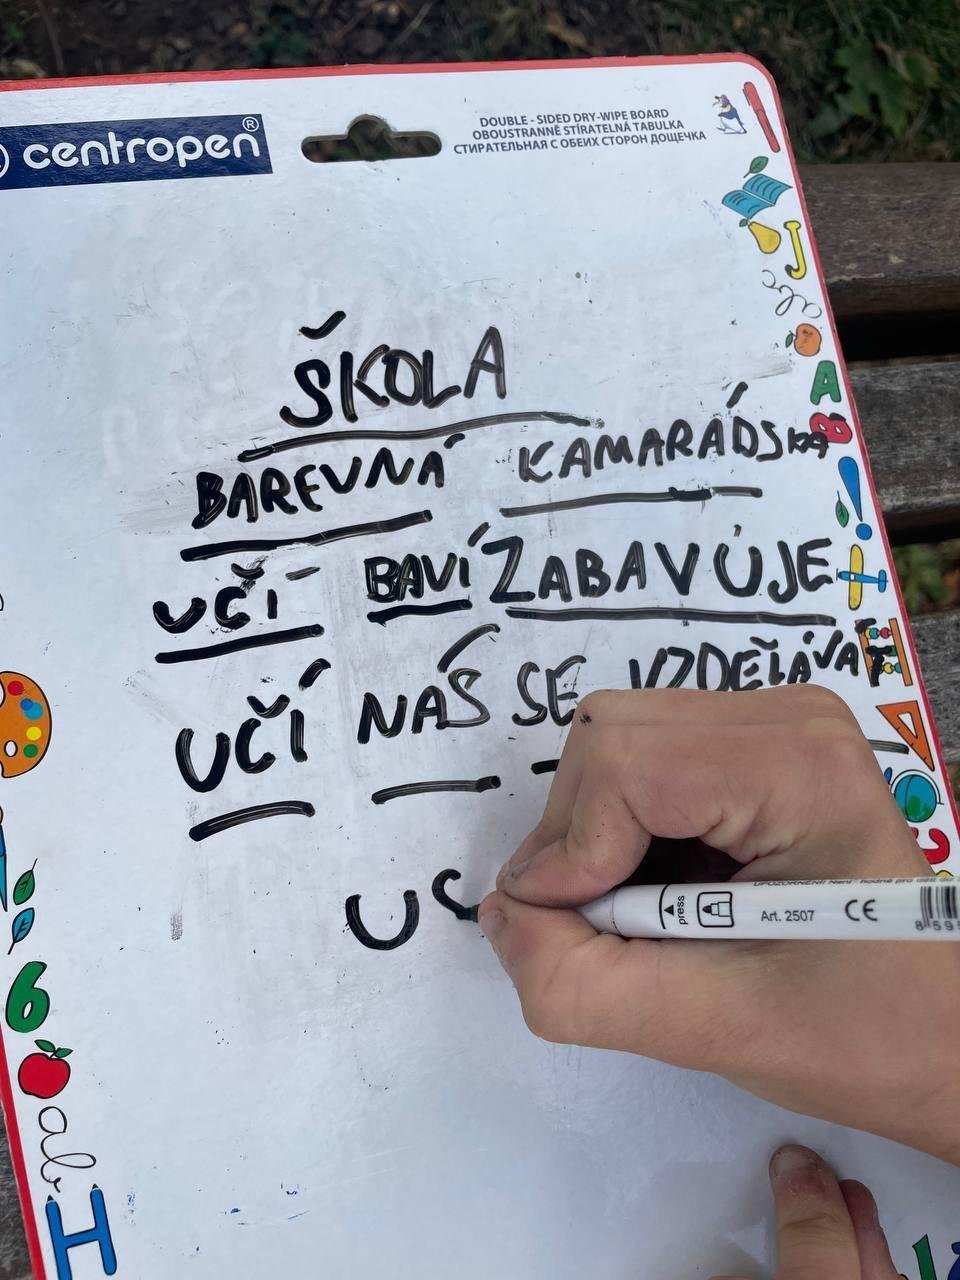 centropen®
DOUBLE - SIDED DRY-WIPE BOARD
OBOUSTRANNĚ STÍRATELNÁ TABULKA
СТИРАТЕЛЬНАЯ С ОБЕИХ СТОРОН ДОЩЕЧКА
ŠKOLA
BAREVNÁ KAMARÁDSKÁ
UČÍ BAVÍ ZABAVUJE
UČÍ NÁS SE VZDĚLÁVAT
US
press Art. 2507 CE